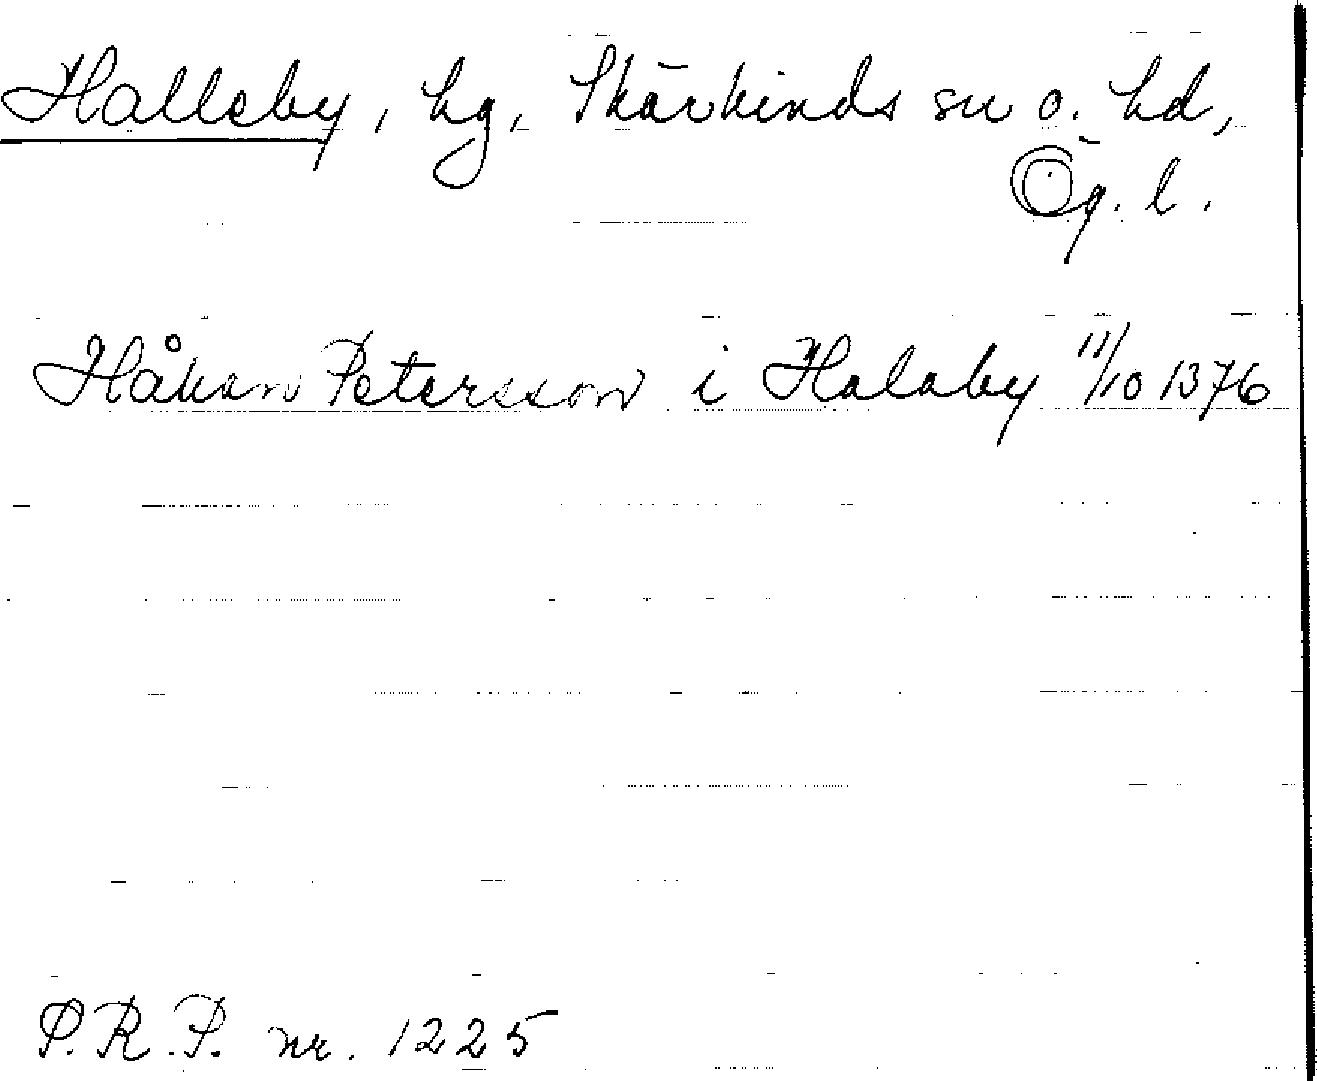 Halleby, hg, Skärkinds sn o. hd,
Ög. l.
Håkan Petersson i Halaby 11/10 1376
P.R.P. nr. 1225